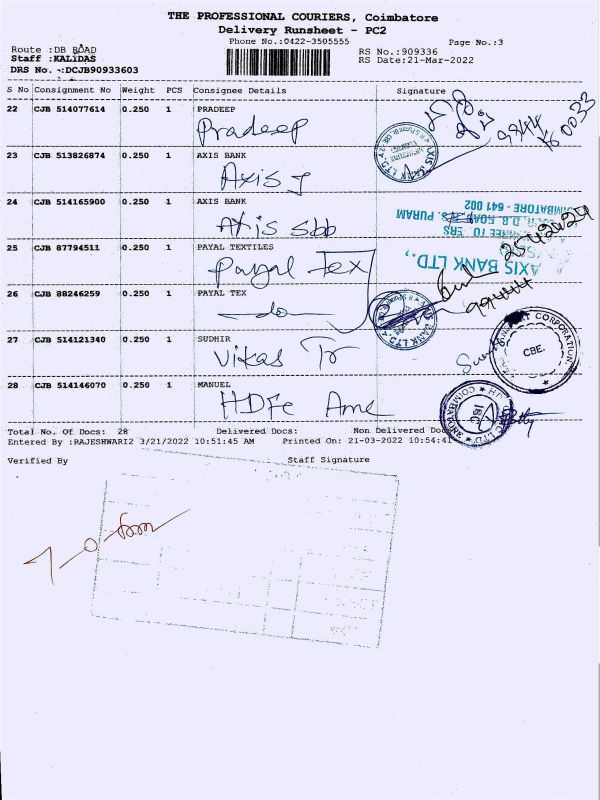 THE PROFESSIONAL COURIERS, Coimbatore
Delivery Runsheet - PC2
Phone No.:0422-3505555 Page No.:3
Route :DB ROAD RS No.:909336
Staff :KALIDAS RS Date:21-Mar-2022
DRS No. -:DCJB90933603
S No Consignment No Weight PCS Consignee Details Signature
22 CJB 514077614 0.250 1 PRADEEP
Pradeep
23 CJB 513826874 0.250 1 AXIS BANK
Axis
24 CJB 514165900 0.250 1 AXIS BANK
Axis sbb
25 CJB 87794511 0.250 1 PAYAL TEXTILES
Payal Tex
AXIS BANK LTD.,
R.S. PURAM
COIMBATORE - 641 002
26 CJB 88246259 0.250 1 PAYAL TEX
do
27 CJB 514121340 0.250 1 SUDHIR
Vikas Tr
CORPORATION
CBE.
28 CJB 514146070 0.250 1 MANUEL
HDFC Ame
COIMBATORE
Total No. Of Docs: 28 Delivered Docs: Non Delivered Docs
Entered By :RAJESHWARI2 3/21/2022 10:51:45 AM Printed On: 21-03-2022 10:54:41
Verified By Staff Signature